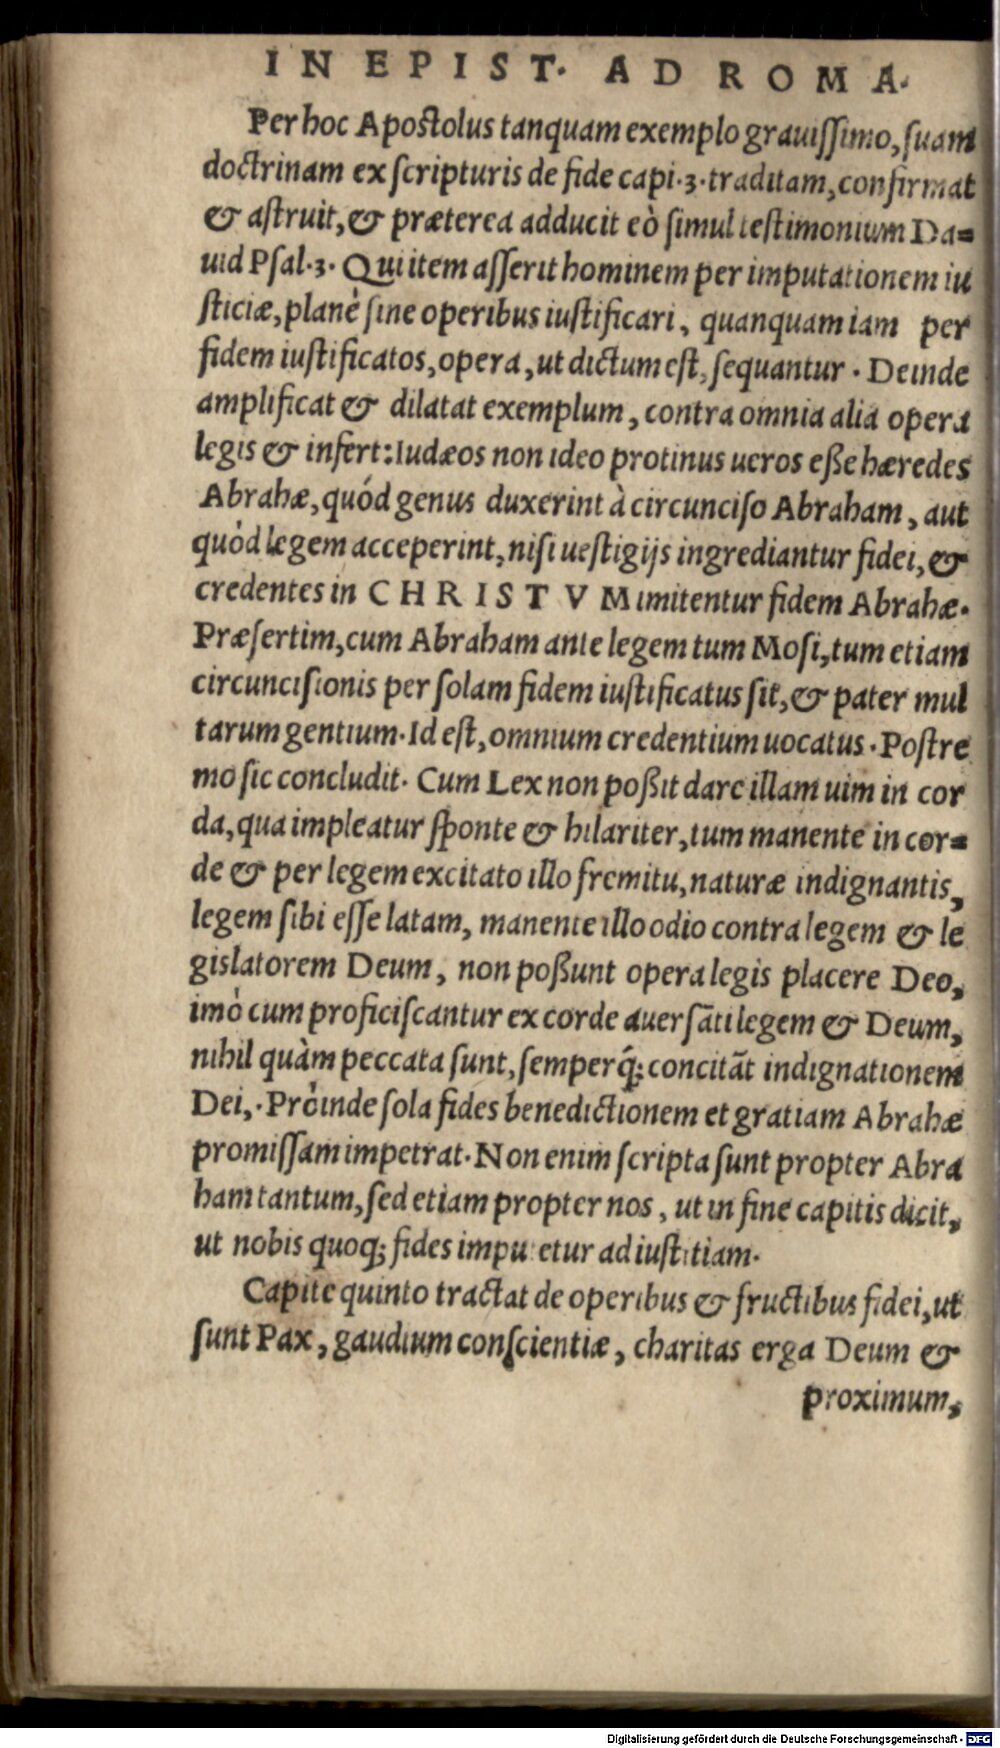 IN EPIST. AD ROMA.
Per hoc Apostolus tanquam exemplo grauiſſimo, ſuam
doctrinam ex ſcripturis de fide capi.3.traditam, confirmat
& aſtruit, & præterea adducit eò ſimul teſtimonium Da=
uid Pſal.3. Qui item aſſerit hominem per imputationem iu
ſticiæ, planè ſine operibus iuſtificari, quanquam iam per
fidem iuſtificatos, opera, ut dictum eſt, ſequantur. Deinde
amplificat & dilatat exemplum, contra omnia alia opera
legis & infert: Iudæos non ideo protinus ueros eße hæredes
Abrahæ, quód genus duxerint à circunciſo Abraham, aut
quòd legem acceperint, niſi ueſtigijs ingrediantur fidei, &
credentes in CHRISTVM imitentur fidem Abrahæ.
Præſertim, cum Abraham ante legem tum Moſi, tum etiam
circunciſionis per ſolam fidem iuſtificatus ſit, & pater mul
tarum gentium. Id eſt, omnium credentium uocatus. Poſtre
mo ſic concludit. Cum Lex non poßit dare illam uim in cor
da, qua impleatur ſponte & hilariter, tum manente in cor=
de & per legem excitato illo fremitu, naturæ indignantis,
legem ſibi eſſe latam, manente illo odio contra legem & le
gislatorem Deum, non poßunt opera legis placere Deo,
imò cum proficiſcantur ex corde auerſãti legem & Deum,
nihil quàm peccata ſunt, ſemperq́; concitãt indignationem
Dei,. Pròinde ſola fides benedictionem et gratiam Abrahæ
promiſſam impetrat. Non enim ſcripta ſunt propter Abra
ham tantum, ſed etiam propter nos, ut in fine capitis dicit,
ut nobis quoq; fides imputetur ad iuſtitiam.
Capite quinto tractat de operibus & fructibus fidei, ut
ſunt Pax, gaudium conſcientiæ, charitas erga Deum &
proximum,
Digitalisierung gefördert durch die Deutsche Forschungsgemeinschaft - DFG